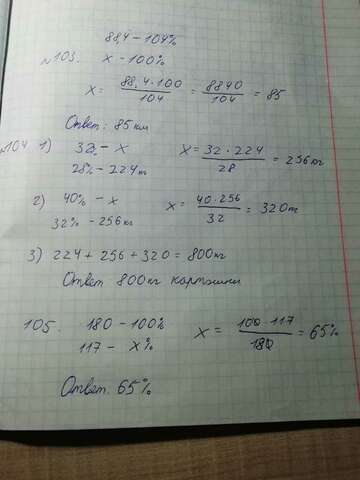 88,4 - 104%
№103. x - 100%
x = 88,4 · 100 / 104 = 8840 / 104 = 85
Ответ: 85 км
№104 1) 32% - x x = 32 · 224 / 28 = 256 кг
28% - 224 т
2) 40% - x x = 40 · 256 / 32 = 320 т
32% - 256 кг
3) 224 + 256 + 320 = 800 кг
Ответ 800 кг картошки
105. 180 - 100% x = 100 · 117 / 180 = 65%
117 - x%
Ответ. 65%